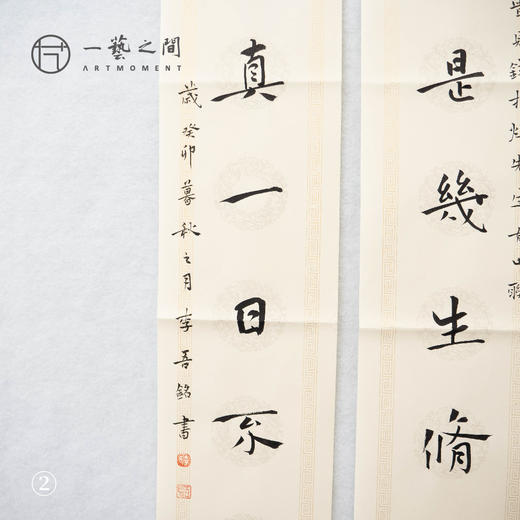 一藝之間
ARTMOMENT
是幾生脩
真一日不
歲癸卯暮秋之月李吾銘書
②